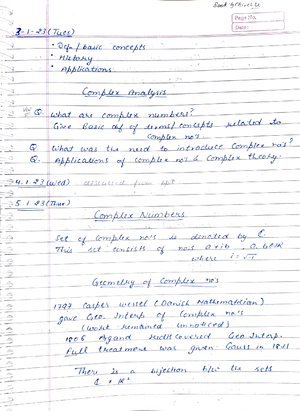 Page No.
Date:
3-1-23 (Tues)
• Defn/basic concepts
• History
• Applications.
Complex Analysis
Q. What are complex numbers?
Give Basic def of terms/concepts related to
complex no's.
Q. What was the need to introduce complex no's?
Q. Applications of complex no's & complex theory.
4-1-23 (Wed) discussed from ppt
5-1-23 (Thur)
Complex Numbers
Set of complex no's is denoted by ℂ.
This set consists of no's a+ib, a, b∈ℝ
where i=√-1
Geometry of Complex no's
1797 Casper Wessel (Danish Mathematician)
gave Geo. Interp. of Complex no's
(work remained unnoticed)
1806 Argand rediscovered Geo. Interp.
Full treatment was given Gauss in 1831
There is a bijection b/w the sets
ℂ & ℝ²